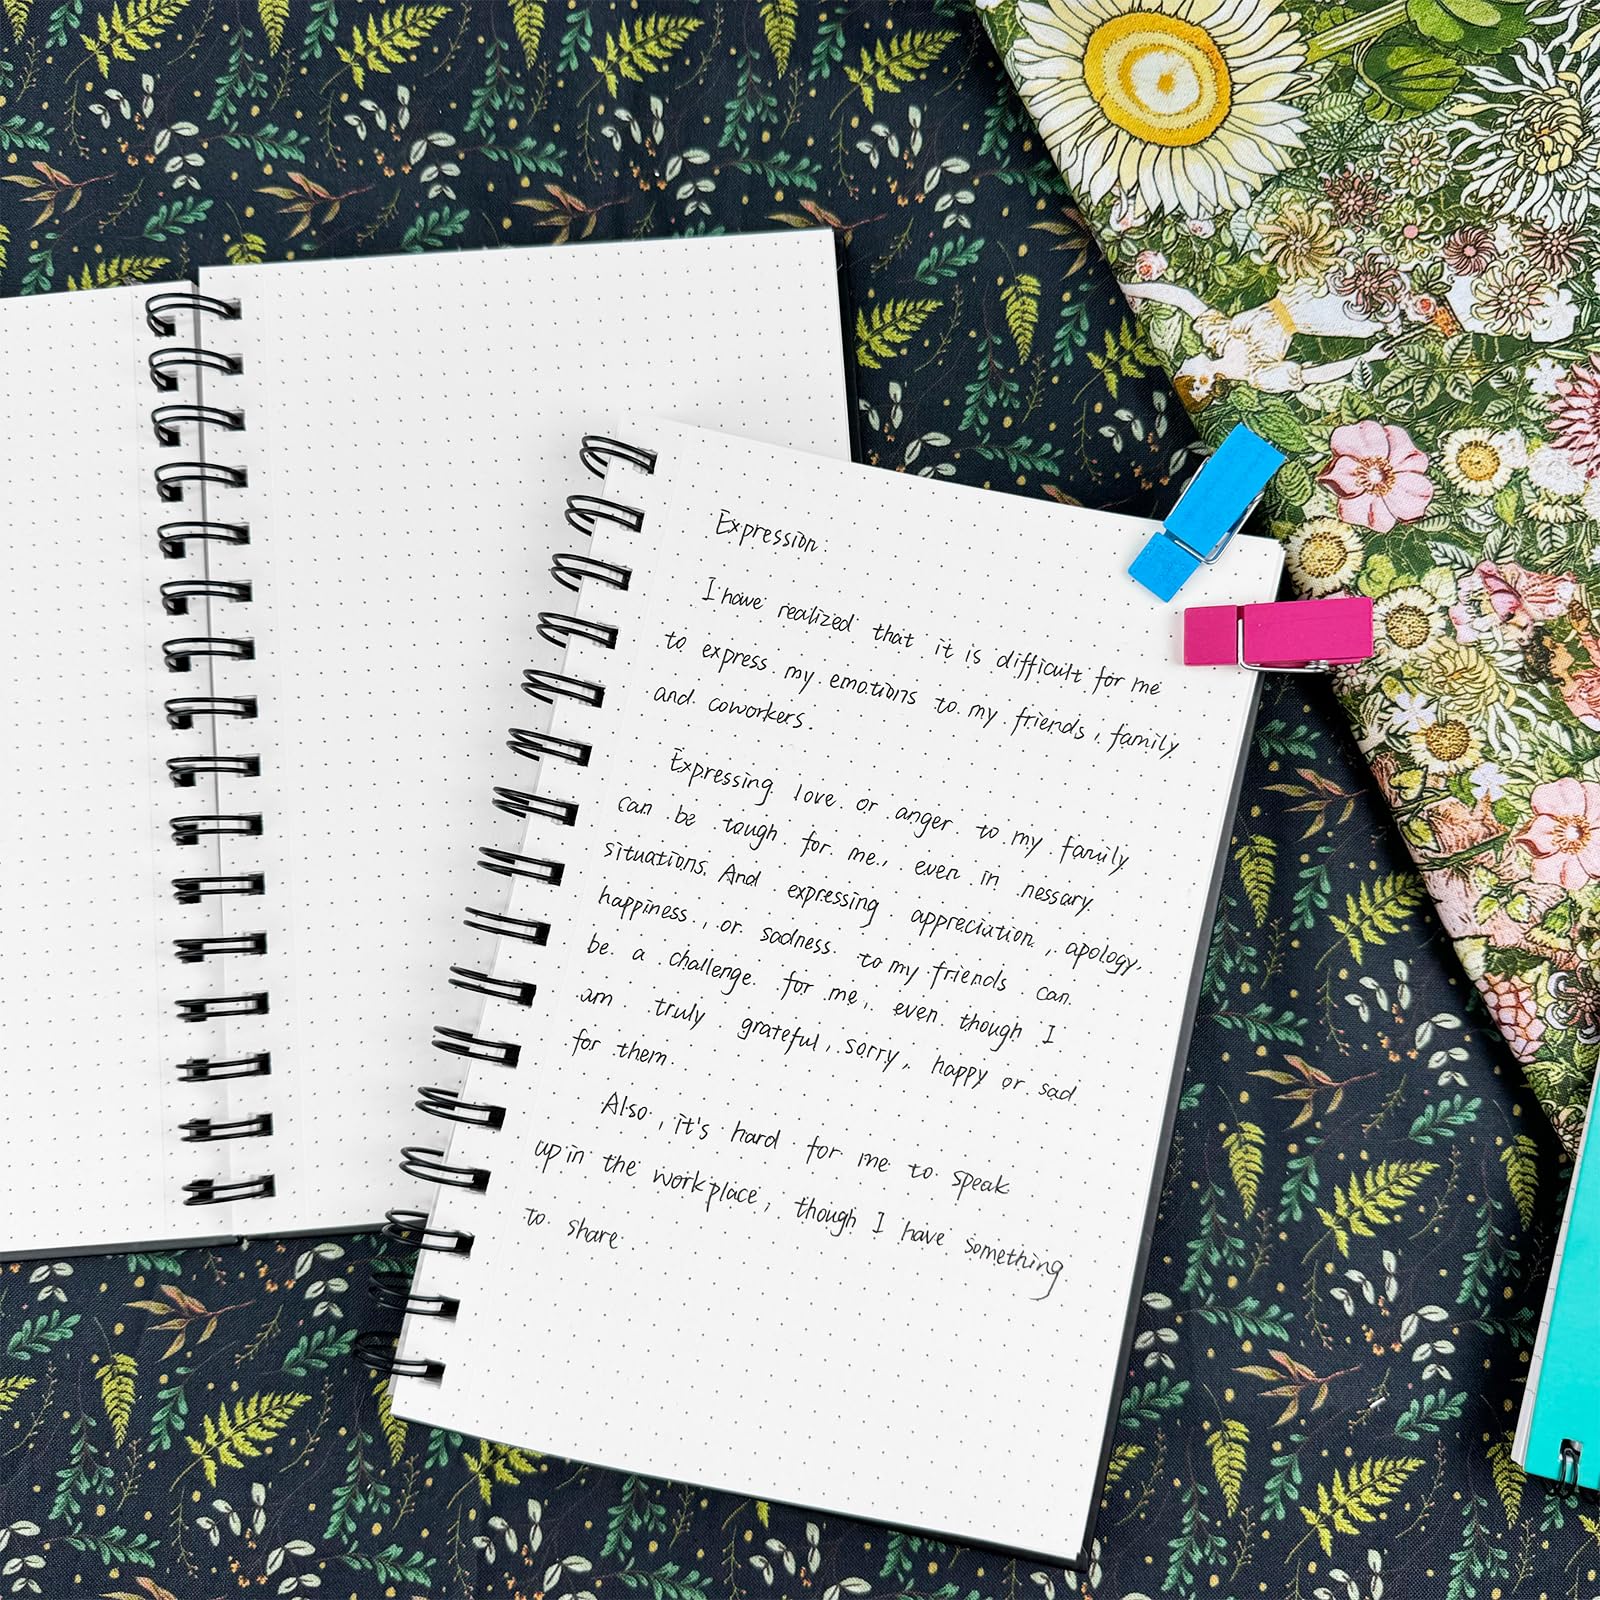 Expression:
I have realized that it is difficult for me
to express my emotions to my friends, family
and coworkers.
Expressing love or anger to my family
can be tough for me, even in nessary
situations. And expressing appreciation, apology,
happiness, or sadness to my friends can
be a challenge for me, even though I
am truly grateful, sorry, happy or sad
for them.
Also, it's hard for me to speak
up in the workplace, though I have something
to share.